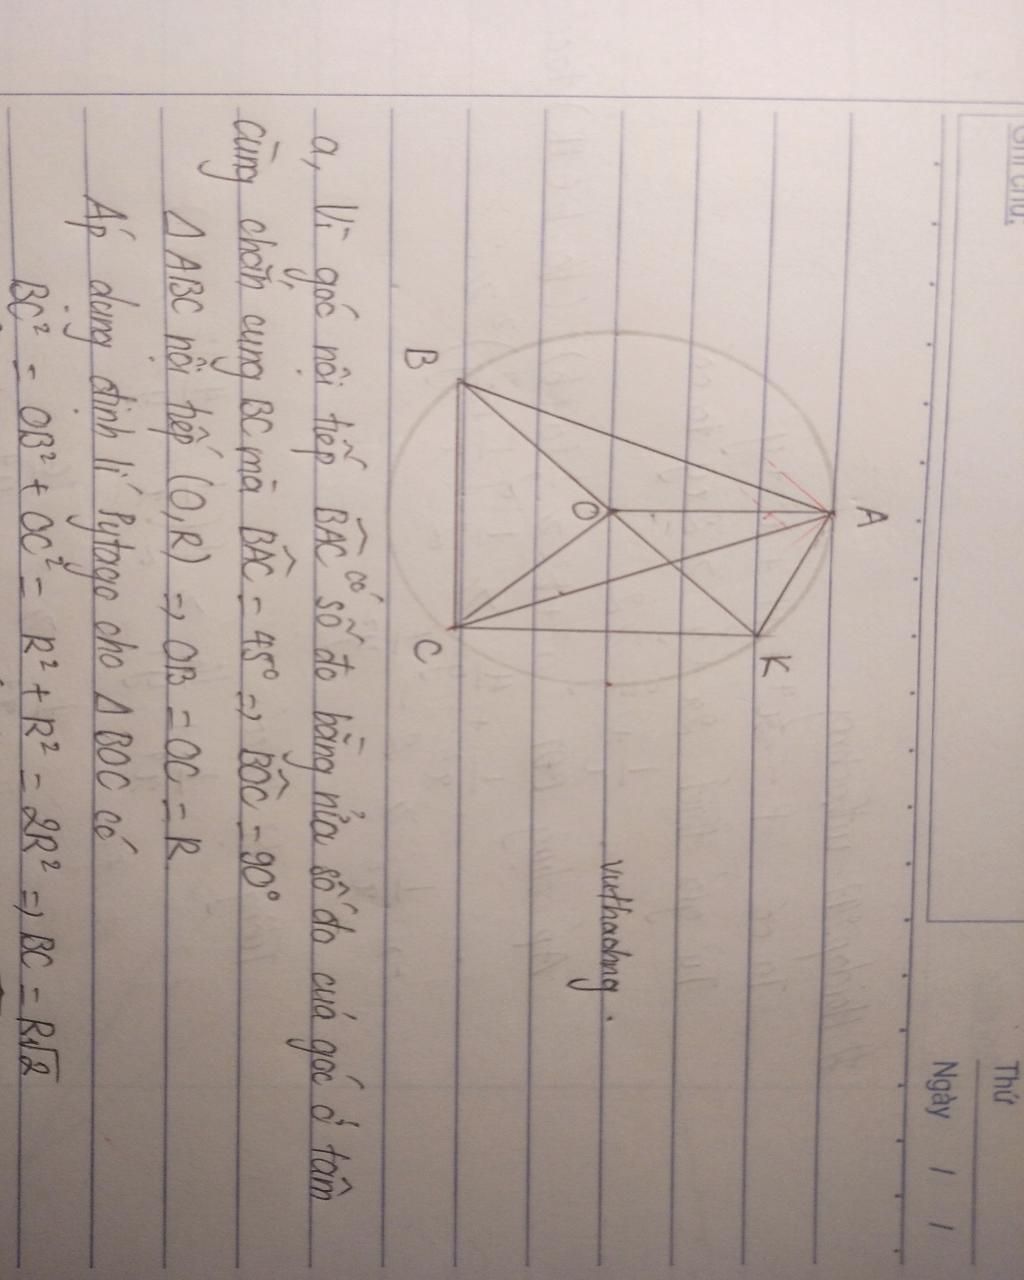 Ghi chú.
Thứ
Ngày / /
A
K
O
B
C
vuthadng.
a, Vì góc nội tiếp BAC có số đo bằng nửa số đo của góc ở tâm
cùng chắn cung BC mà BAC = 45° => BOC = 90°
Δ ABC nội tiếp (O,R) => OB = OC = R
Áp dụng định lí Pytago cho Δ BOC có
BC² = OB² + OC² = R² + R² = 2R² => BC = R√2